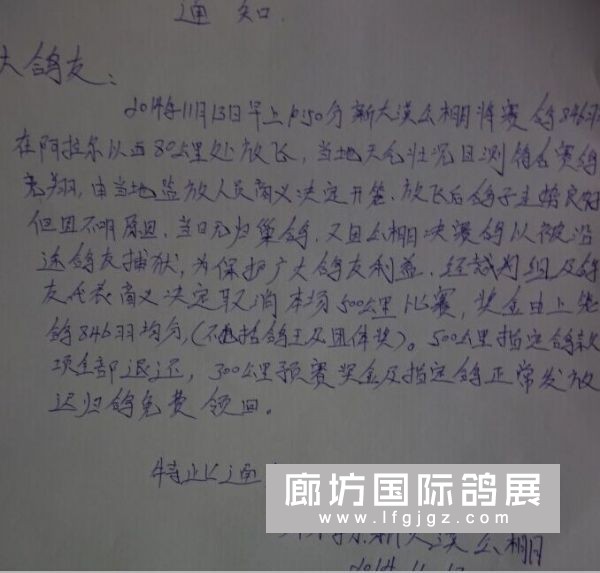 通知.
大鸽友：
2014年11月13日早上10:50分新大漠公棚将赛鸽846羽
在阿拉尔以西80公里处放飞，当地天气状况目测符合赛鸽
竞翔，由当地监放人员商义决定开笼.放飞后鸽子走势良好
但因不明原因.当日无归巢鸽.又因公棚决赛鸽以被沿
途鸽友捕获，为保护广大鸽友利益.经裁判组及鸽
友代表商义决定取消本场500公里比赛，奖金由上笼
鸽846羽均分,(不包括鸽王及团体奖)。500公里指定鸽款
项全部退还，300公里预赛奖金及指定鸽正常发放
迟归鸽免费领回。
特此通
新大漠公棚
2014.11
廊坊国际鸽展
www.lfgjgz.com